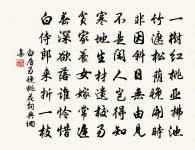 一樹紅桃亞拂池
竹遮松蔭晚開時
非因斜日無由見
不是閑人豈得知
寒地生材遺校易
貧家養女嫁常遲
春深欲落誰憐惜
白侍郎來折一枝
白居易晚桃花詞典網
集